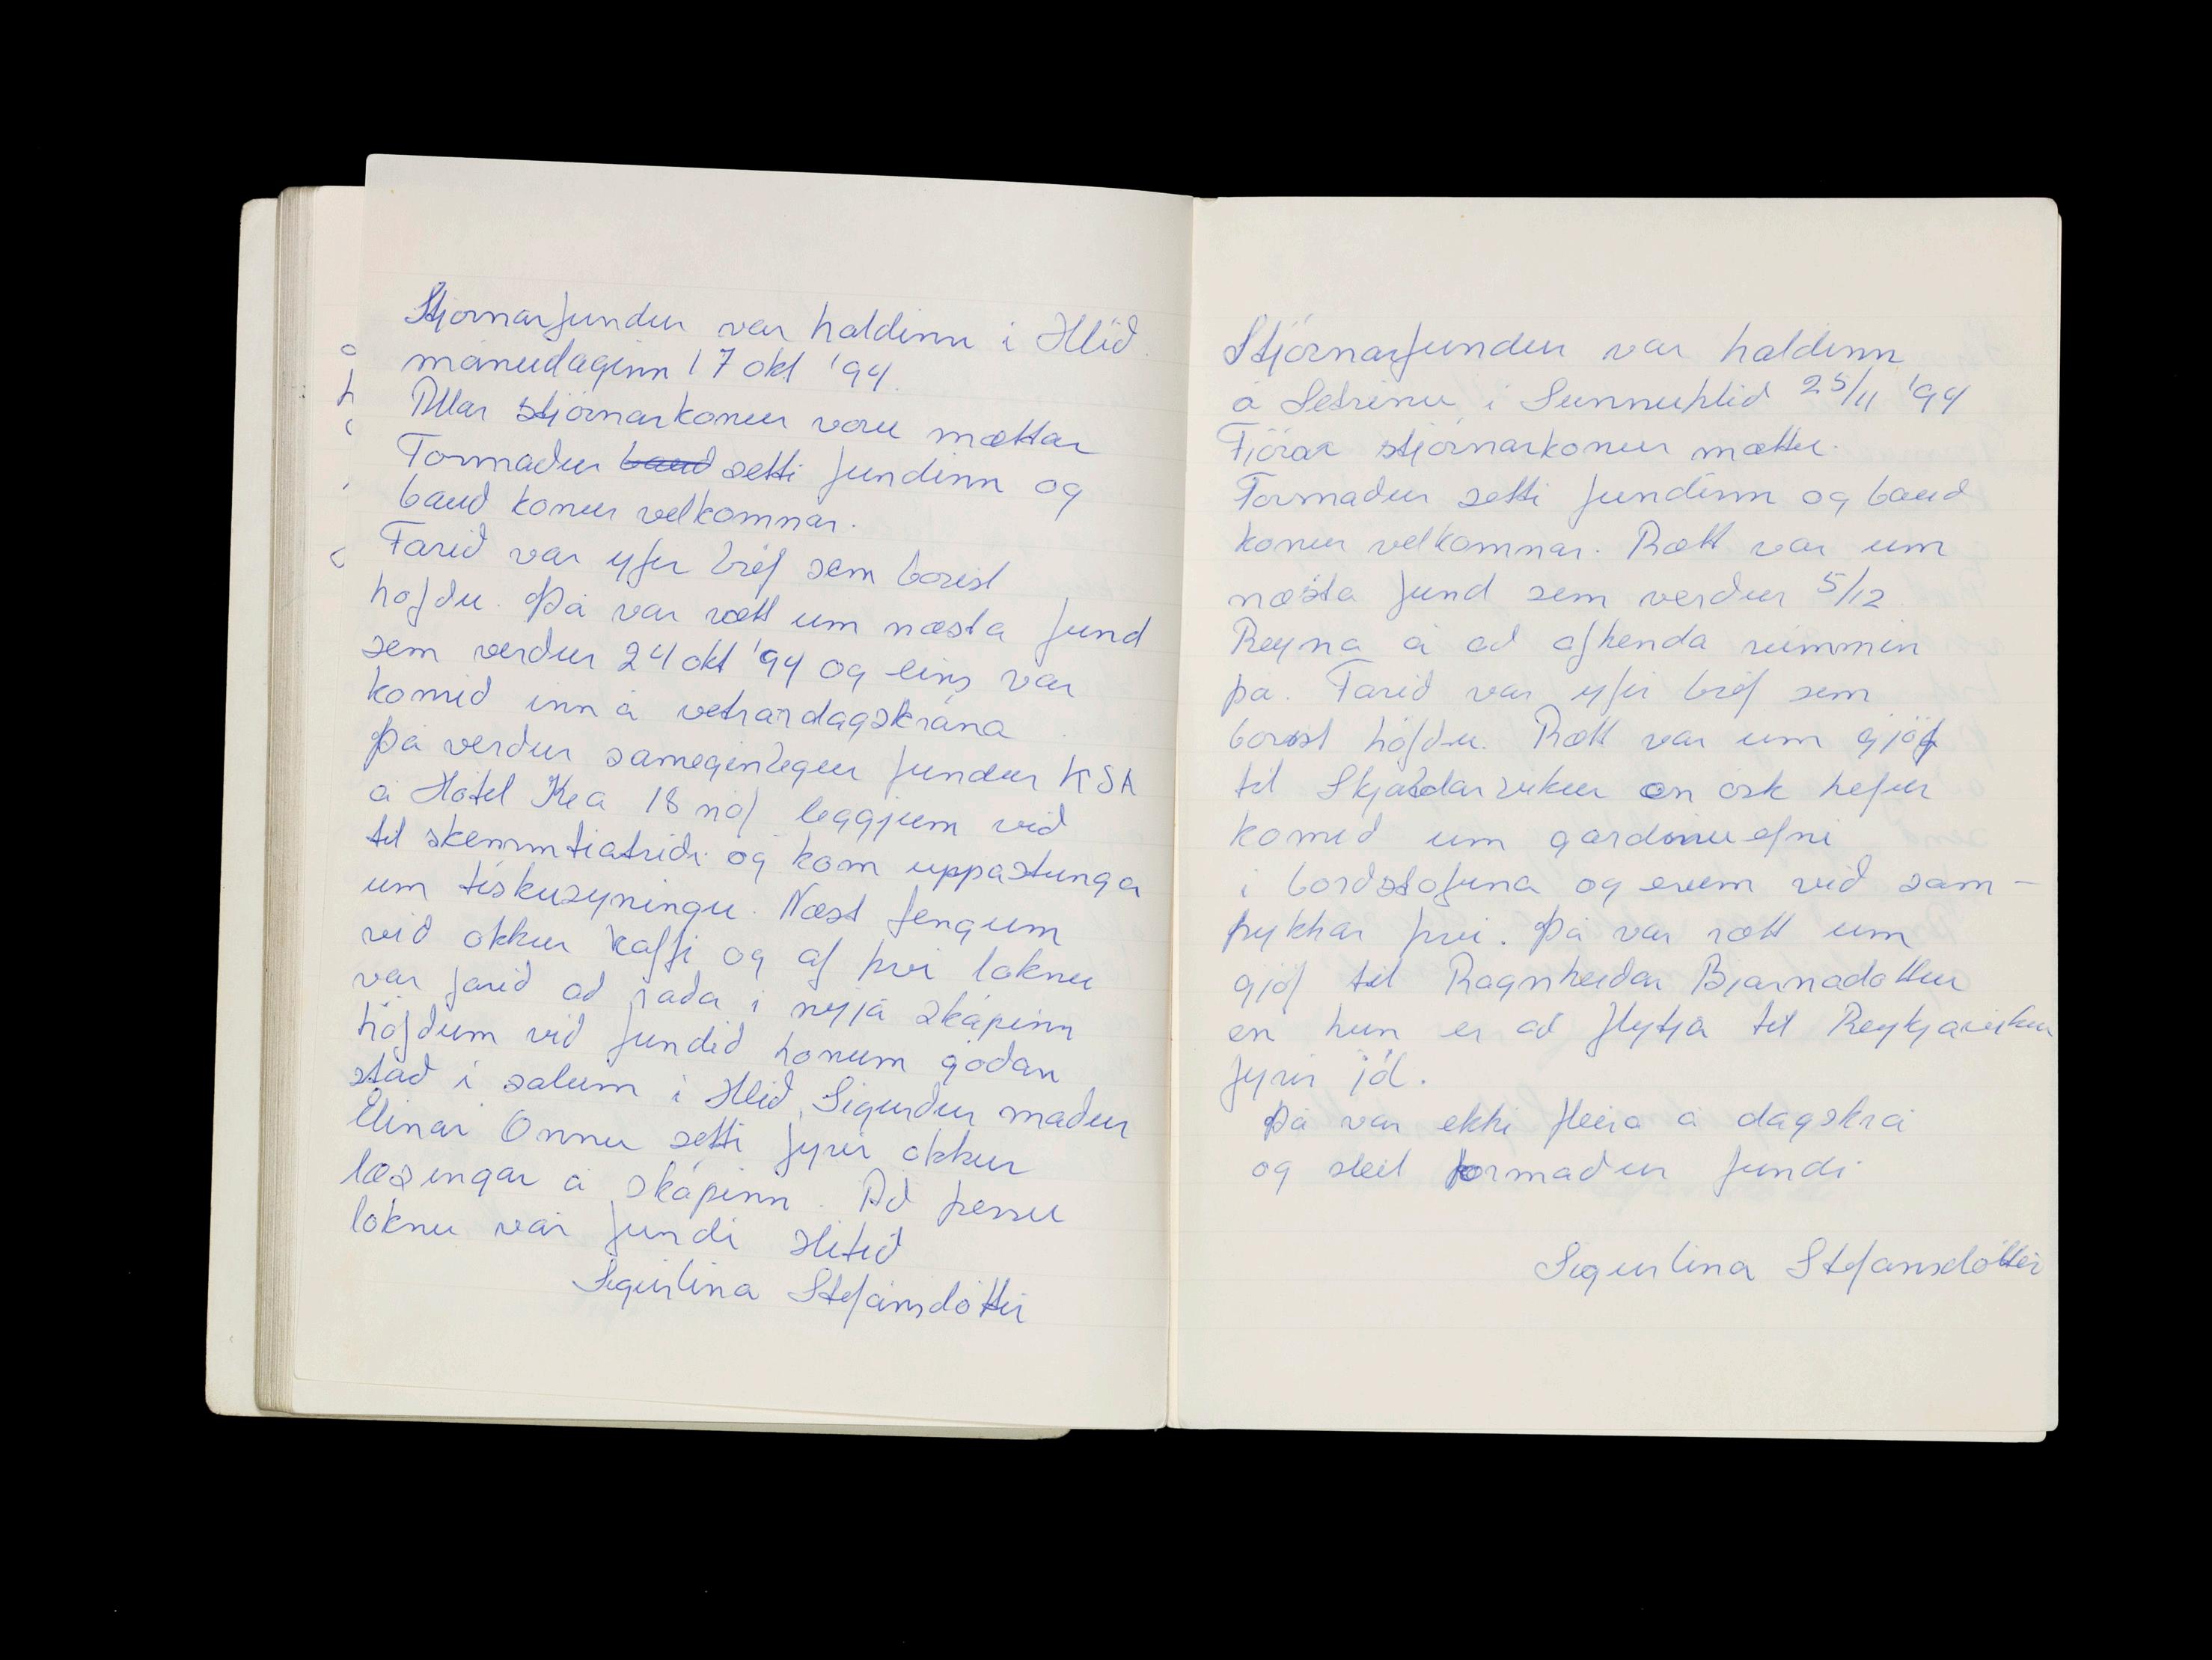 Stjórnarfundur var haldinn i Hlið
mánudaginn 17 okt '94.
Allar stjórnarkonur voru mættar
Formaður baud setti fundinn og
bauð konur velkomnar.
Farið var yfir bréf sem borist
höfðu. Þá var rætt um næsta fund
sem verður 24 okt '94 og eins var
komið inn á vetrardagskrána
Þá verður sameginlegur fundur KSA
á Hótel Kea 18 nóf leggjum við
til skemmtiatriði og kom uppástunga
um tískusýningu. Næst fengum
við okkur kaffi og af því loknu
var farið að raða i nýja skápinn
höfðum við fundið honum góðan
stað i salum i Hlið, Sigurður maður
Elinar Önnu setti fyrir okkur
læsingar á skápinn. Að þessu
loknu var fundi slitið
Sigurlina Stefánsdóttir
Stjórnarfundur var haldinn
á Setrinu i Sunnuhlið 25/11 '94
Fjórar stjórnarkonur mættu.
Formaður setti fundinn og bauð
konur velkomnar. Rætt var um
næsta fund sem verður 5/12
Reyna á að afhenda rúmmin
þá. Farið var yfir bréf sem
borist höfðu. Rætt var um gjöf
til Skjaldarvikur en ósk hefur
komið um gardinuefni
i borðstofuna og erum við sam-
þykkar þvi. Þá var rætt um
gjöf til Ragnheiðar Bjarnadóttur
en hun er að flytja til Reykjavikur
fyrir jól.
Þá var ekki fleira á dagskrá
og sleit formaður fundi
Sigurlina Stefansdóttir